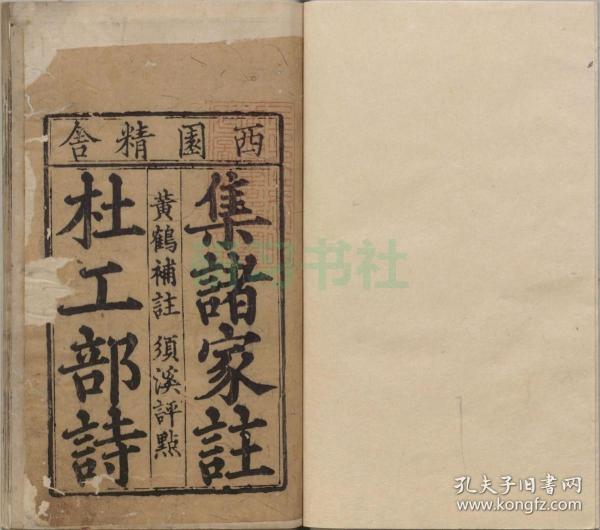 西園精舍
集諸家註
黄鶴補註 須溪評點
杜工部詩
孔夫子旧书网
www.kongfz.com